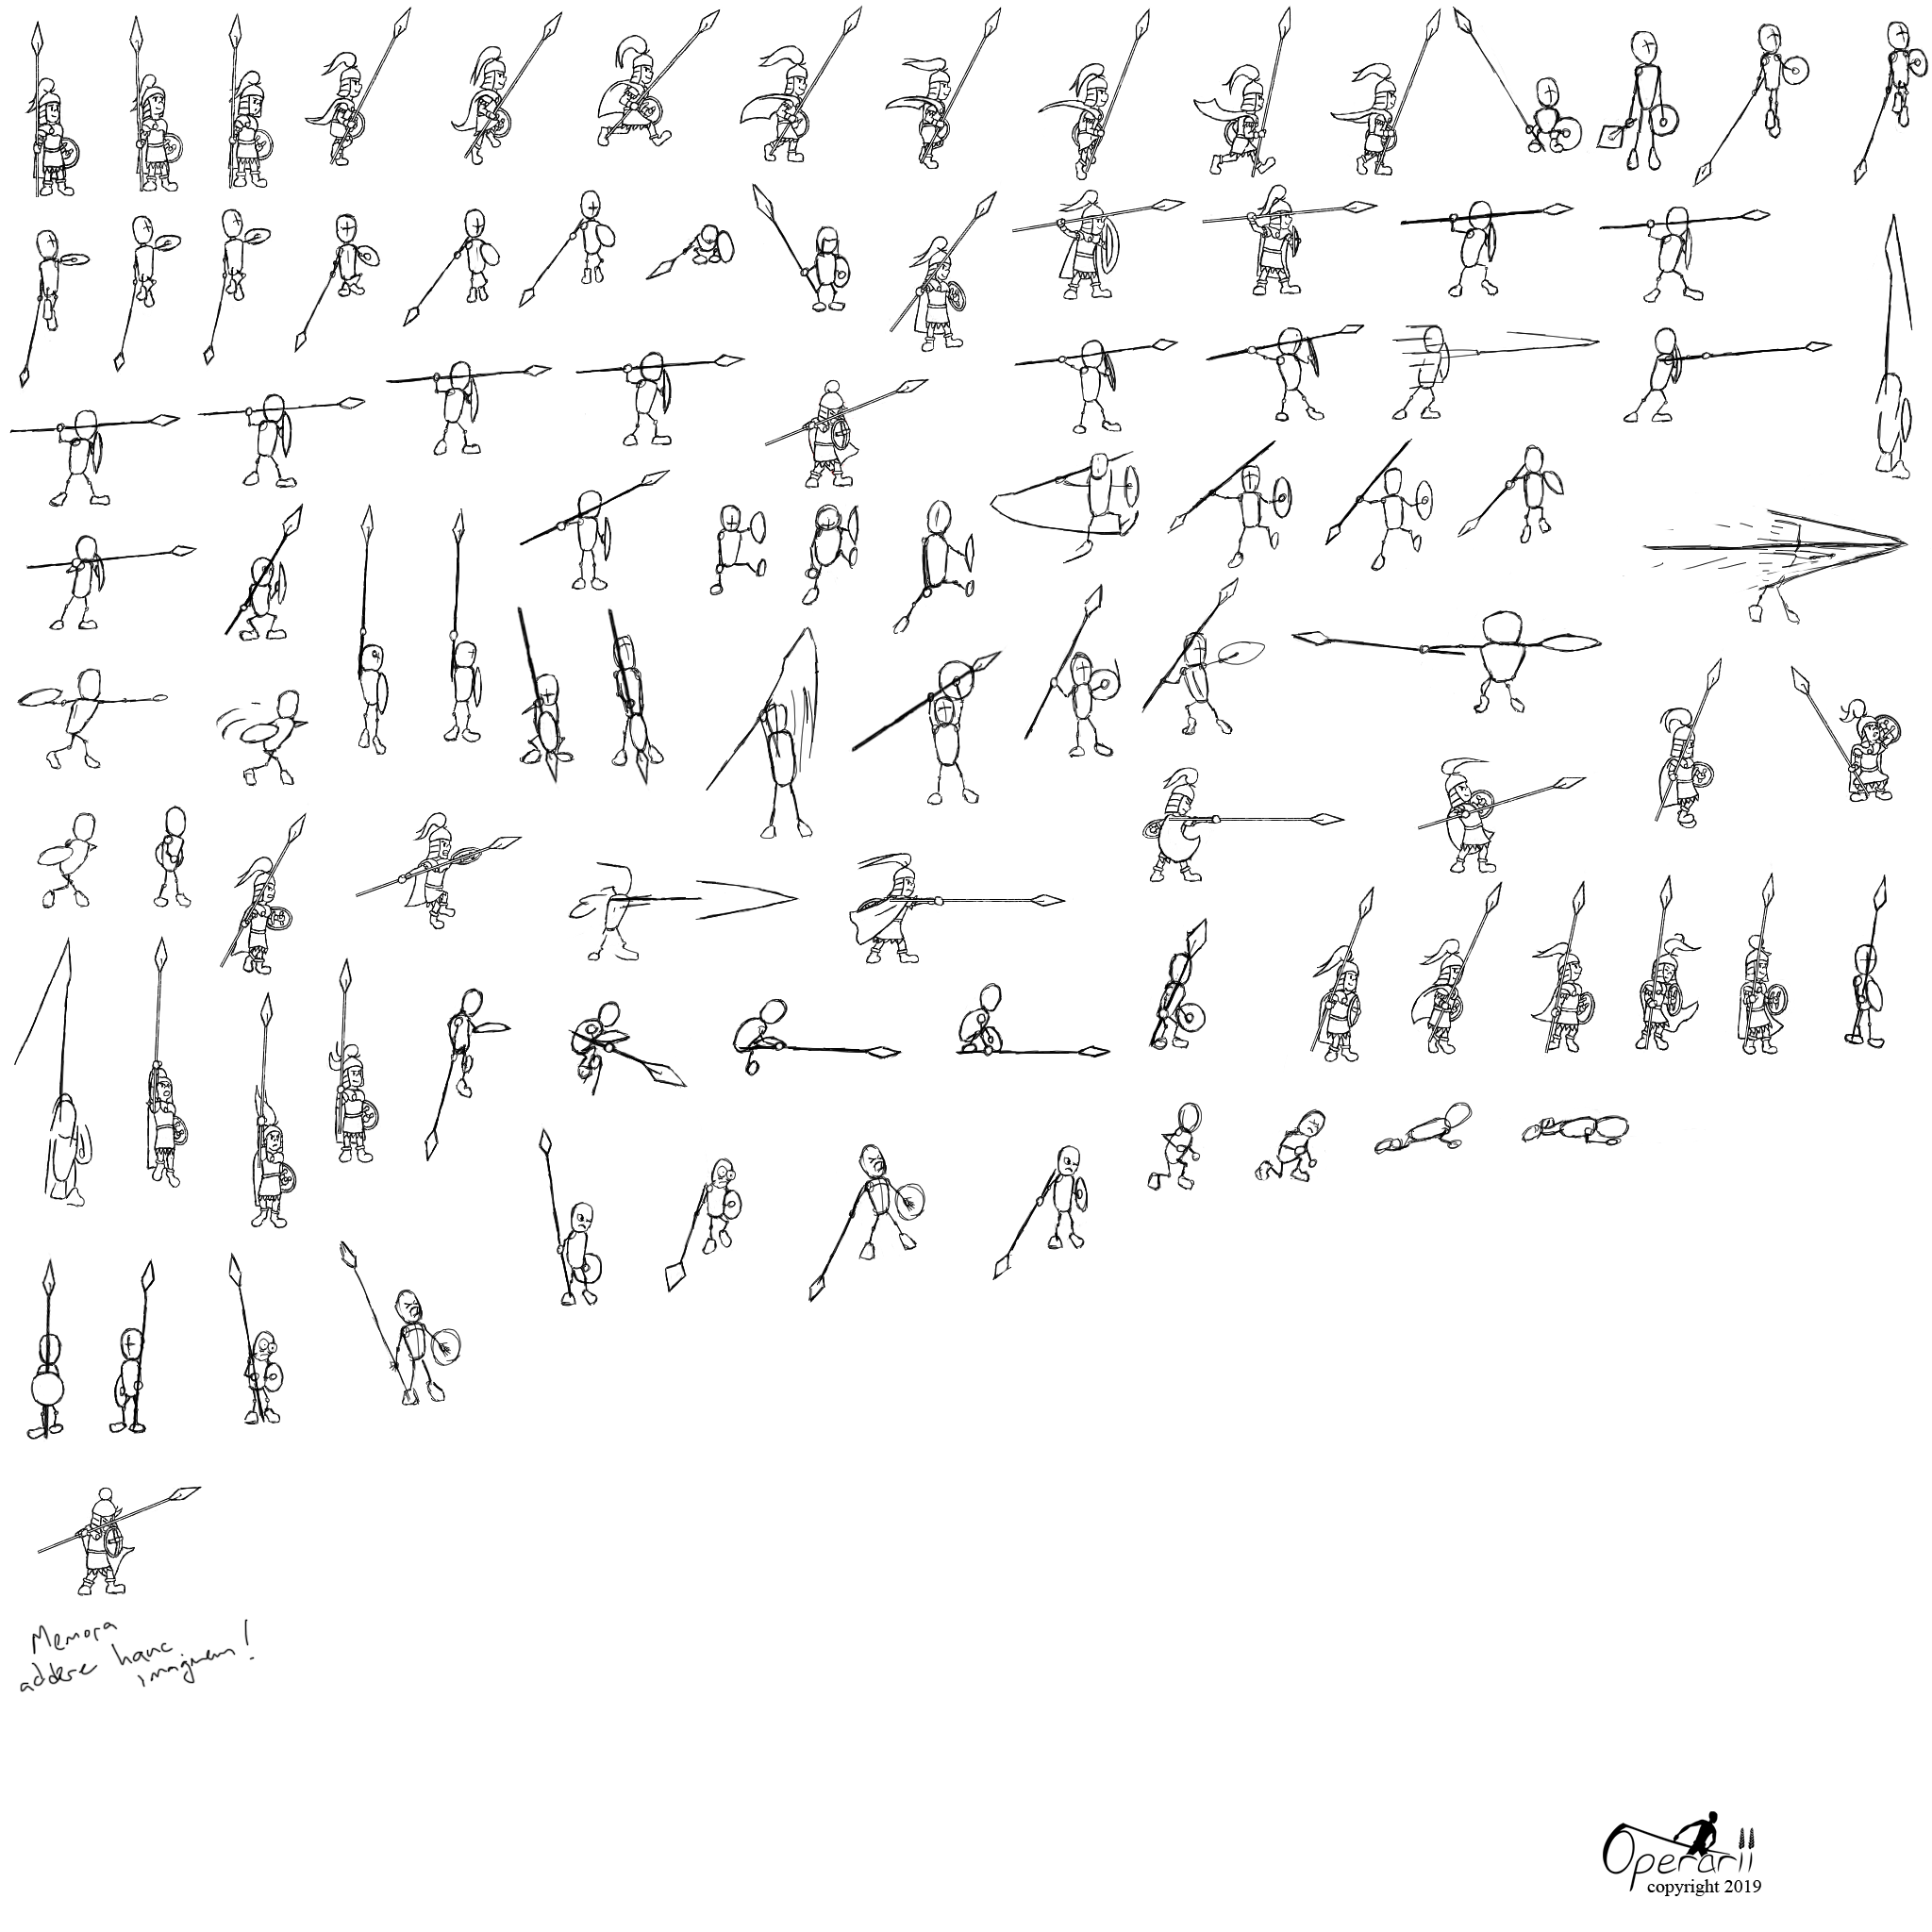 Memora
addere hanc
imaginem!
Operarii
copyright 2019